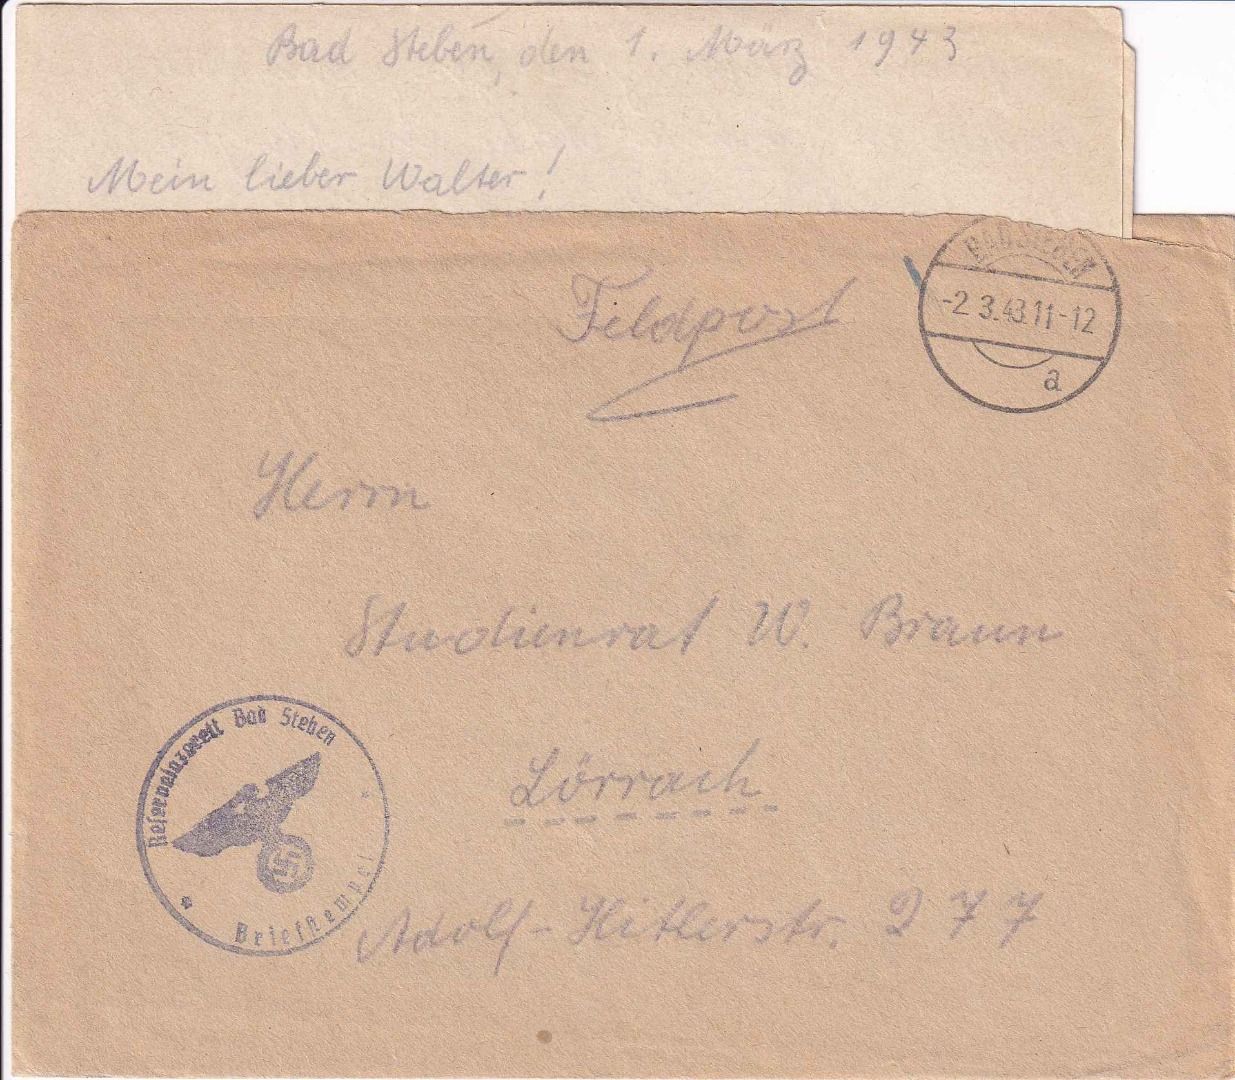 Bad Steben, den 1. März 1943
Mein lieber Walter!
BAD STEBEN
-2.3.43.11-12
a
Feldpost
Herrn
Studienrat W. Braun
Lörrach
Adolf-Hitlerstr. 277
Reservelazarett Bad Steben
* Briefstempel *